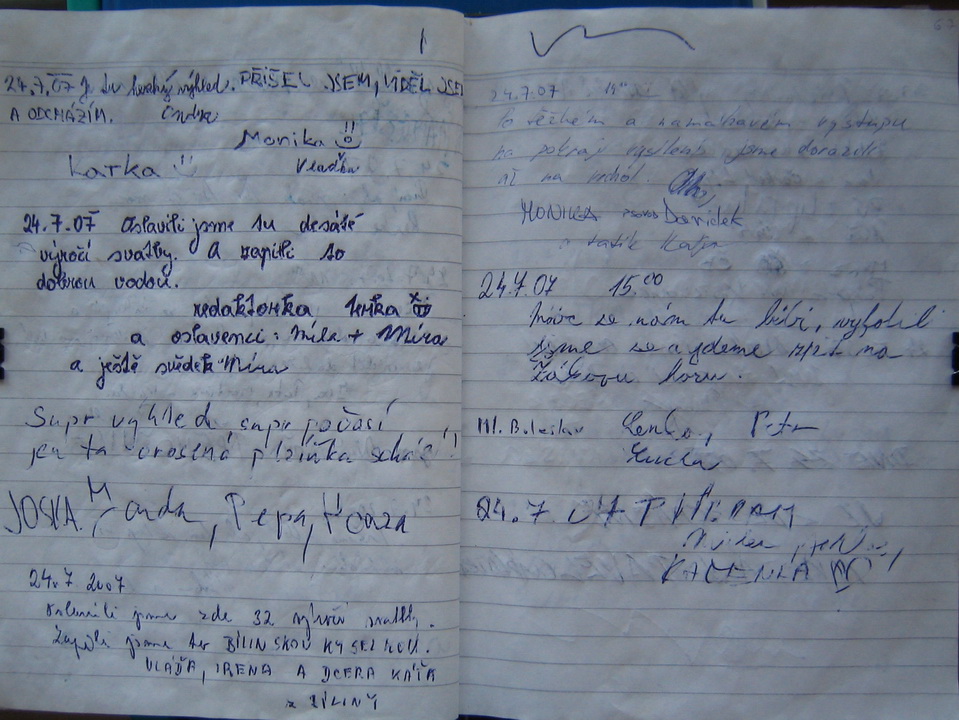 24.7.07 Je tu hezký výhled. PŘIŠEL JSEM, VIDĚL JSEM
A ODCHÁZÍM.
Monika
Katka Vlaďka
24.7.07 Oslavili jsme tu desáté
výročí svatby. A zapili to
dobrou vodou.
redaktorka Jirka
a oslavenci: Míla + Míra
a ještě svědek Míra
Supr výhled supr počasí
jen ta orosená plzínka schází!!
JOSKA, Jarda, Pepa, Honza
24.7 2007
Oslavili jsme zde 32 výročí svatby.
Zapili jsme to BÍLINSKOU KYSELKOU.
VLÁĎA, IRENA A DCERA KÁŤA
z BÍLINY
24.7.07
Po těžkém a namáhavém výstupu
na pokraji vysílení jsme dorazili
až na vrchol. Ahoj
MONIKA Davídek
a taťík
24.7.07 15.00
Moc se nám tu líbí, vyfotili
jsme se a jdeme zpět na
Žákovu horu.
Ml. Boleslav Lenka, Petr
Lucka
24.7 07